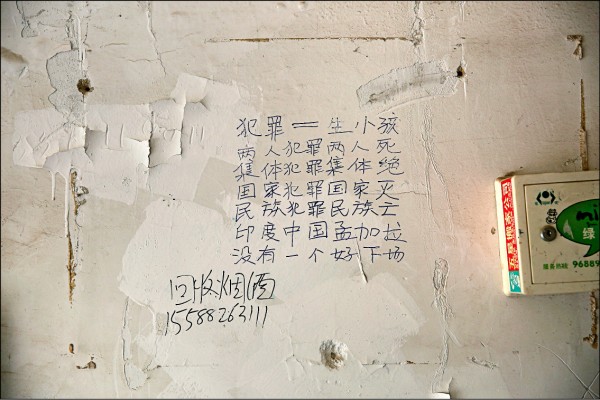 犯罪＝生小孩
两人犯罪两人死
集体犯罪集体绝
国家犯罪国家灭
民族犯罪民族亡
印度中国孟加拉
没有一个好下场
回收烟酒
15588263111
绿
9688